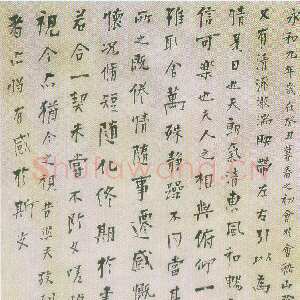 永和九年歲在癸丑暮春之初會於會稽山
又有清流激湍映帶左右引以為
情是日也天朗氣清惠風和暢
信可樂也夫人之相與俯仰一
雖取舍萬殊靜躁不同當其
所之既倦情隨事遷感慨
懷況脩短隨化終期於
若合一契未嘗不臨文嗟
視今亦猶今之視昔
者亦將有感於斯文